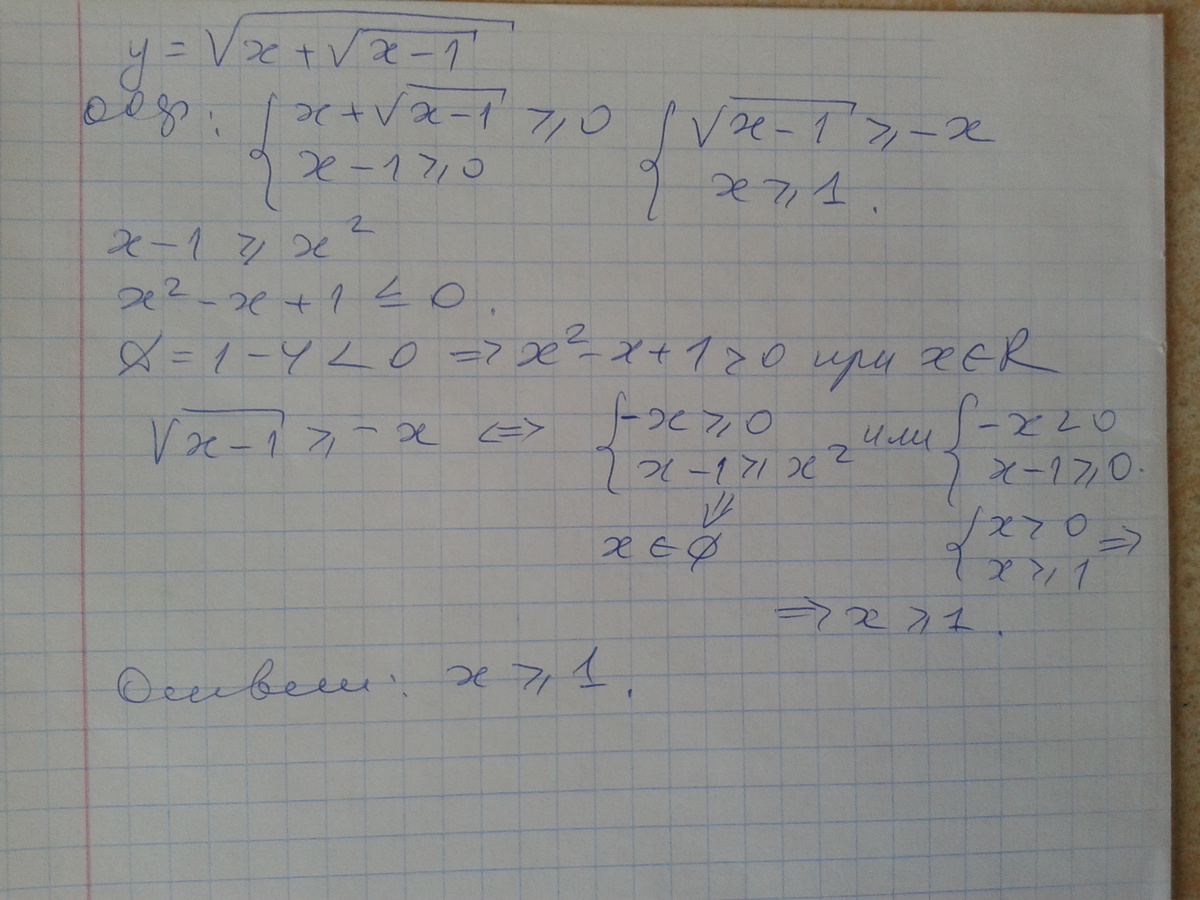 y = √(x + √(x − 1))
ООФ: { x + √(x − 1) ⩾ 0 { √(x − 1) ⩾ −x
x − 1 ⩾ 0 x ⩾ 1.
x − 1 ⩾ x²
x² − x + 1 ≤ 0.
D = 1 − 4 < 0 => x² − x + 1 > 0 при x ∈ R
√(x − 1) ⩾ −x <=> { −x ⩾ 0 или { −x < 0
x − 1 ⩾ x² x − 1 ⩾ 0.
⇓
x ∈ ∅ { x > 0 =>
x ⩾ 1
=> x ⩾ 1.
Ответ: x ⩾ 1.